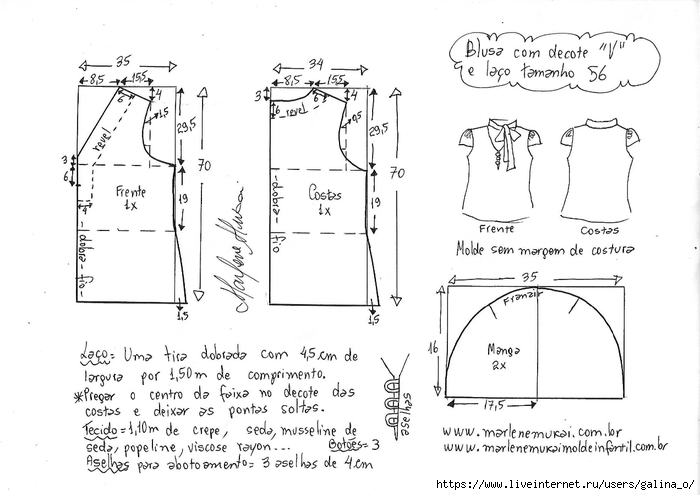 Blusa com decote "V"
e laço tamanho 56
35
8,5
15,5
6
4
1,5
29,5
revel
3
6
Frente
1x
70
4
19
dobra - fio
1,5
34
8,5
15,5
3
6
3
4
6
revel
0,5
29,5
Costas
1x
70
19
dobra - fio
1,5
Frente
Costas
Molde sem margem de costura
35
Franzir
16
Manga
2x
17,5
Laço = Uma tira dobrada com 4,5 cm de
largura por 1,50 m de comprimento.
*Pregar o centro da faixa no decote das
costas e deixar as pontas soltas.
Tecido = 1,10m de crepe, seda, musseline de
seda, popeline, viscose rayon... Botões = 3
Aselhas para abotoamento = 3 aselhas de 4cm
aselhas
www.marlenemukai.com.br
www.marlenemukaimoldeinfantil.com.br
https://www.liveinternet.ru/users/galina_o/